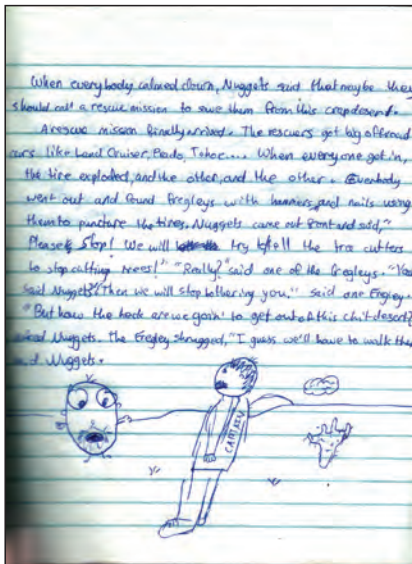 When everybody calmed down, Nuggets said that maybe they
should call a rescue mission to save them from this crap desert.
A rescue misson finally arrived. The rescuers got big offroad
cars like Land Cruiser, Prado, Tahoe.... When everyone get in,
the tire exploded, and the other, and the other. Everybody
went out and found Eregleys with hammers and nails using
them to puncture the tires. Nuggets came out front and said,"
Please Stop! We will try to tell the tree cutters
to stop cutting trees!" "Really?" said one of the Eregleys. "Yes"
said Nuggets. "Then we will stop bothering you," said one Eregley.
"But how the heck are we goin' to get out of this desert?"
Nuggets. The Eregley shrugged, "I guess we'll have to walk
Nuggets.
CAPTAIN